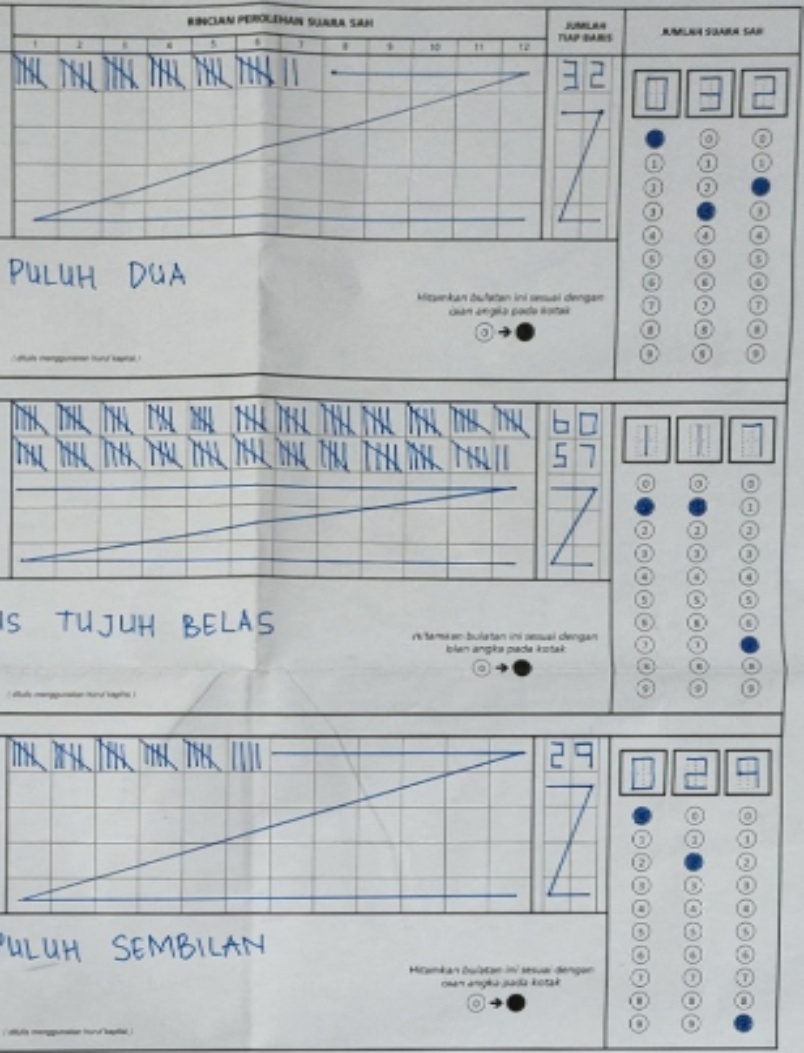 RINCIAN PEROLEHAN SUARA SAH
JUMLAH TIAP BARIS
JUMLAH SUARA SAH
1 2 3 4 5 6 7 8 9 10 11 12
32
0 3 2
0 0
1 1 1
2 2
3 3
4 4 4
5 5 5
6 6 6
7 7 7
8 8 8
9 9 9
PULUH DUA
Hitamkan bulatan ini sesuai dengan
isian angka pada kotak
0
(ditulis menggunakan huruf kapital)
60
57
1 1 7
0 0 0
1
2 2 2
3 3 3
4 4 4
5 5 5
6 6 6
7 7
8 8 8
9 9 9
US TUJUH BELAS
Hitamkan bulatan ini sesuai dengan
isian angka pada kotak
0
(ditulis menggunakan huruf kapital)
29
0 2 9
0 0
1 1 1
2 2
3 3 3
4 4 4
5 5 5
6 6 6
7 7 7
8 8 8
9 9
PULUH SEMBILAN
Hitamkan bulatan ini sesuai dengan
isian angka pada kotak
0
(ditulis menggunakan huruf kapital)